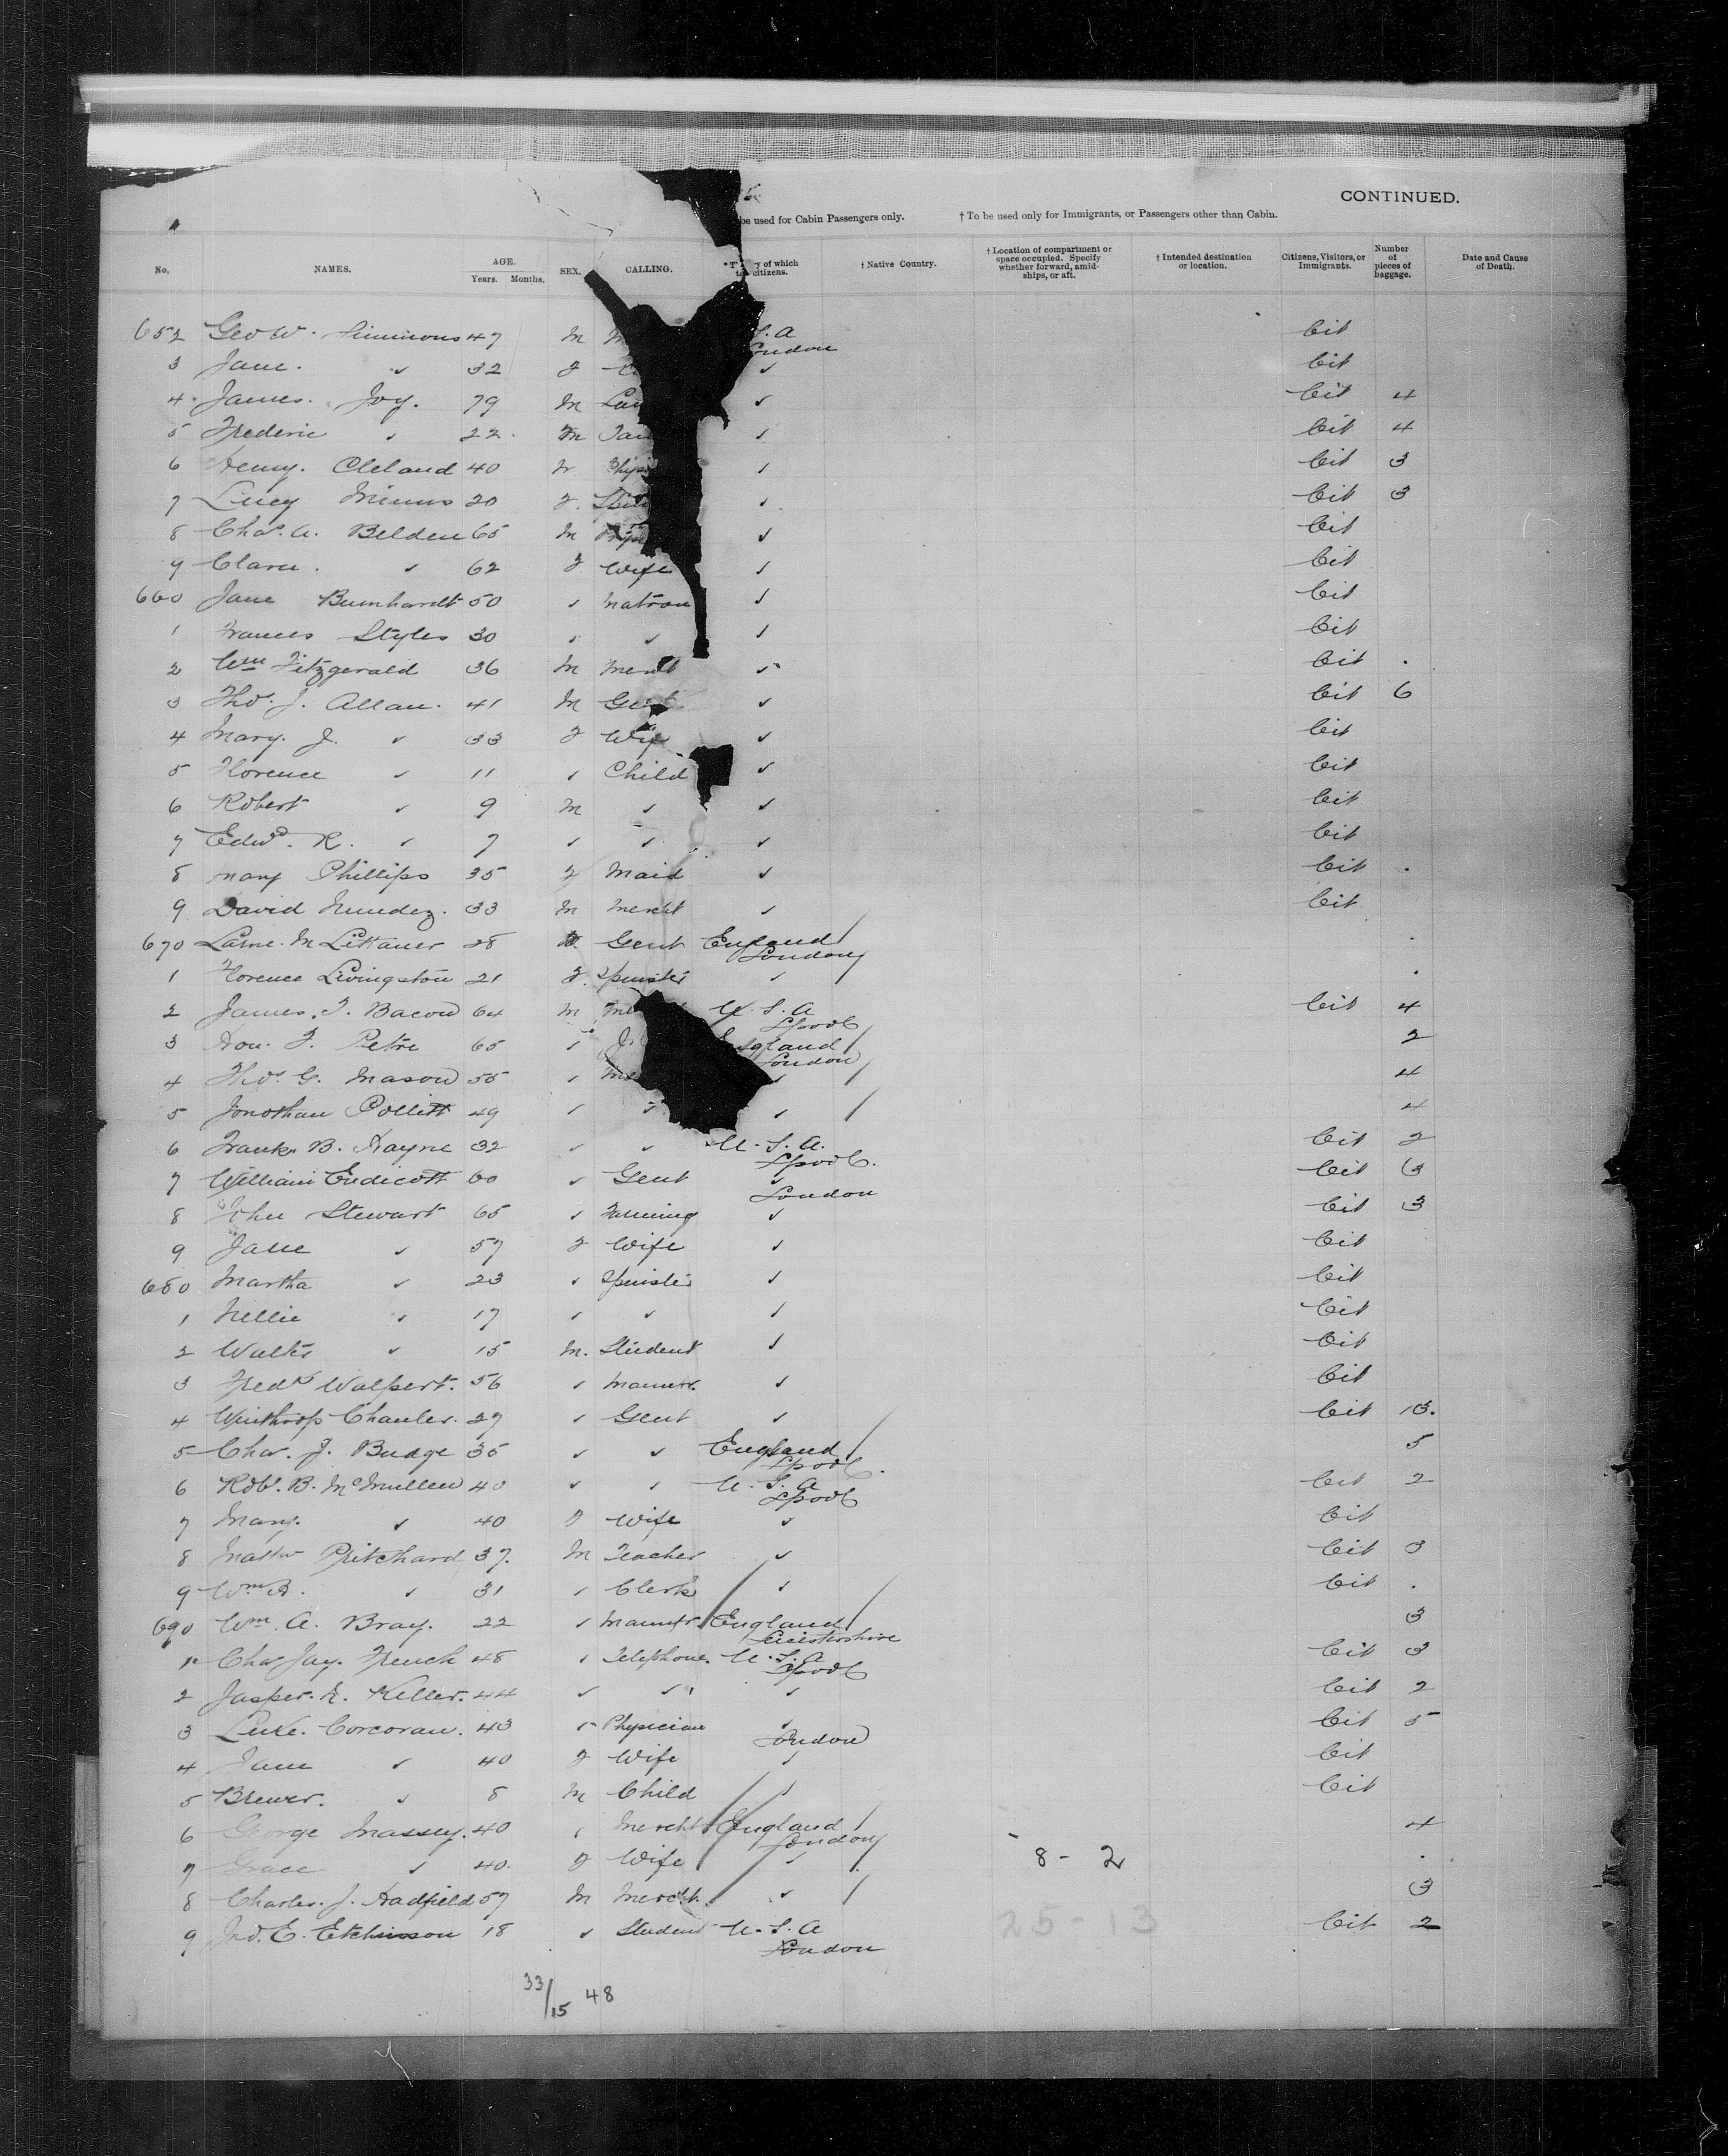 CONTINUED.
be used for Cabin Passengers only. † To be used only for Immigrants, or Passengers other than Cabin.
No. NAMES. AGE. Years. Months. SEX. CALLING. y of which citizens. † Native Country. † Location of compartment or space occupied. Specify whether forward, amidships, or aft. † Intended destination or location. Citizens, Visitors, or Immigrants. Number of pieces of baggage. Date and Cause of Death.
652 Geo W. Simmons 47 M S. A Cit
London
3 Jane. ✓ 32 F ✓ Cit
4 James. Joy. 79 M ✓ Cit 4
5 Frederic ✓ 22 M ✓ Cit 4
6 Henry. Cleland 40 M Physi ✓ Cit 3
7 Lucy Mimms 20 F. Spin ✓ Cit 3
8 Chas. A. Belden 65 M ✓ Cit
9 Clara. ✓ 62 F Wife ✓ Cit
660 Jane 50 ✓ Matron ✓ Cit
1 Frances Styles 30 ✓ ✓ ✓ Cit
2 Wm Fitzgerald 36 M Mercht ✓ Cit
3 Tho. J. Allan. 41 M Gent ✓ Cit 6
4 Mary. J. ✓ 33 F Wife ✓ Cit
5 Florence ✓ 11 ✓ Child ✓ Cit
6 Robert ✓ 9 M ✓ ✓ Cit
7 Edwd. R. ✓ 7 ✓ ✓ ✓ Cit
8 Mary Phillips 35 F Maid ✓ Cit
9 David 33 M Mercht ✓ Cit
670 M Littauer 28 Gent England
London
1 Florence Livingston 21 F. Spinster ✓
2 James. T. Bacon 64 M Me U. S. A Cit 4
Lpool
3 Hon. F. Petre 65 ✓ England 2
London
4 Thos. G. Mason 55 ✓ Me ✓ 4
5 Jonathan Pollitt 49 ✓ ✓ ✓ 4
6 Frank B. Hayne 32 ✓ ✓ U. S. A. Cit 2
Lpool.
7 William Endicott 60 ✓ Gent ✓ Cit 3
London
8 John Stewart 65 ✓ Farming ✓ Cit 3
9 Jane ✓ 57 F Wife ✓ Cit
680 Martha ✓ 23 ✓ Spinster ✓ Cit
1 Nellie ✓ 17 ✓ ✓ ✓ Cit
2 Walter ✓ 15 M. Student ✓ Cit
3 Fredk Walpert. 56 ✓ Manuftr. ✓ Cit
4 Winthrop Chanler. 27 ✓ Gent ✓ Cit 13.
5 Chas. J. Budge 35 ✓ ✓ England 5
Lpool.
6 Robt. B. McMullen 40 ✓ ✓ U. S. A Cit 2
Lpool
7 Mary. ✓ 40 F Wife ✓ Cit
8 Matthw Pritchard 37. M Teacher ✓ Cit 3
9 Wm ✓ 31 ✓ Clerk ✓ Cit
690 Wm. A. Bray. 22 ✓ Manuftr. England 3
Leicestershire
1 Chas Jay. French 48 ✓ Telephone. U. S. A Cit 3
Lpool
2 Jasper. N. Keller. 44 ✓ ✓ ✓ Cit 2
3 Luke. Corcoran. 43 ✓ Physician ✓ Cit 5
London
4 Jane ✓ 40 F Wife ✓ Cit
5 Brewer. ✓ 8 M Child ✓ Cit
6 George Massey. 40 ✓ Mercht England 4
London
7 Grace ✓ 40. F Wife ✓ 8 - 2
8 Charles. J. Hadfield 57 M Mercht. ✓ 3
9 Jno. E. Etchinson 18 ✓ Student U. S. A 25-13 Cit 2
London
33/15 48